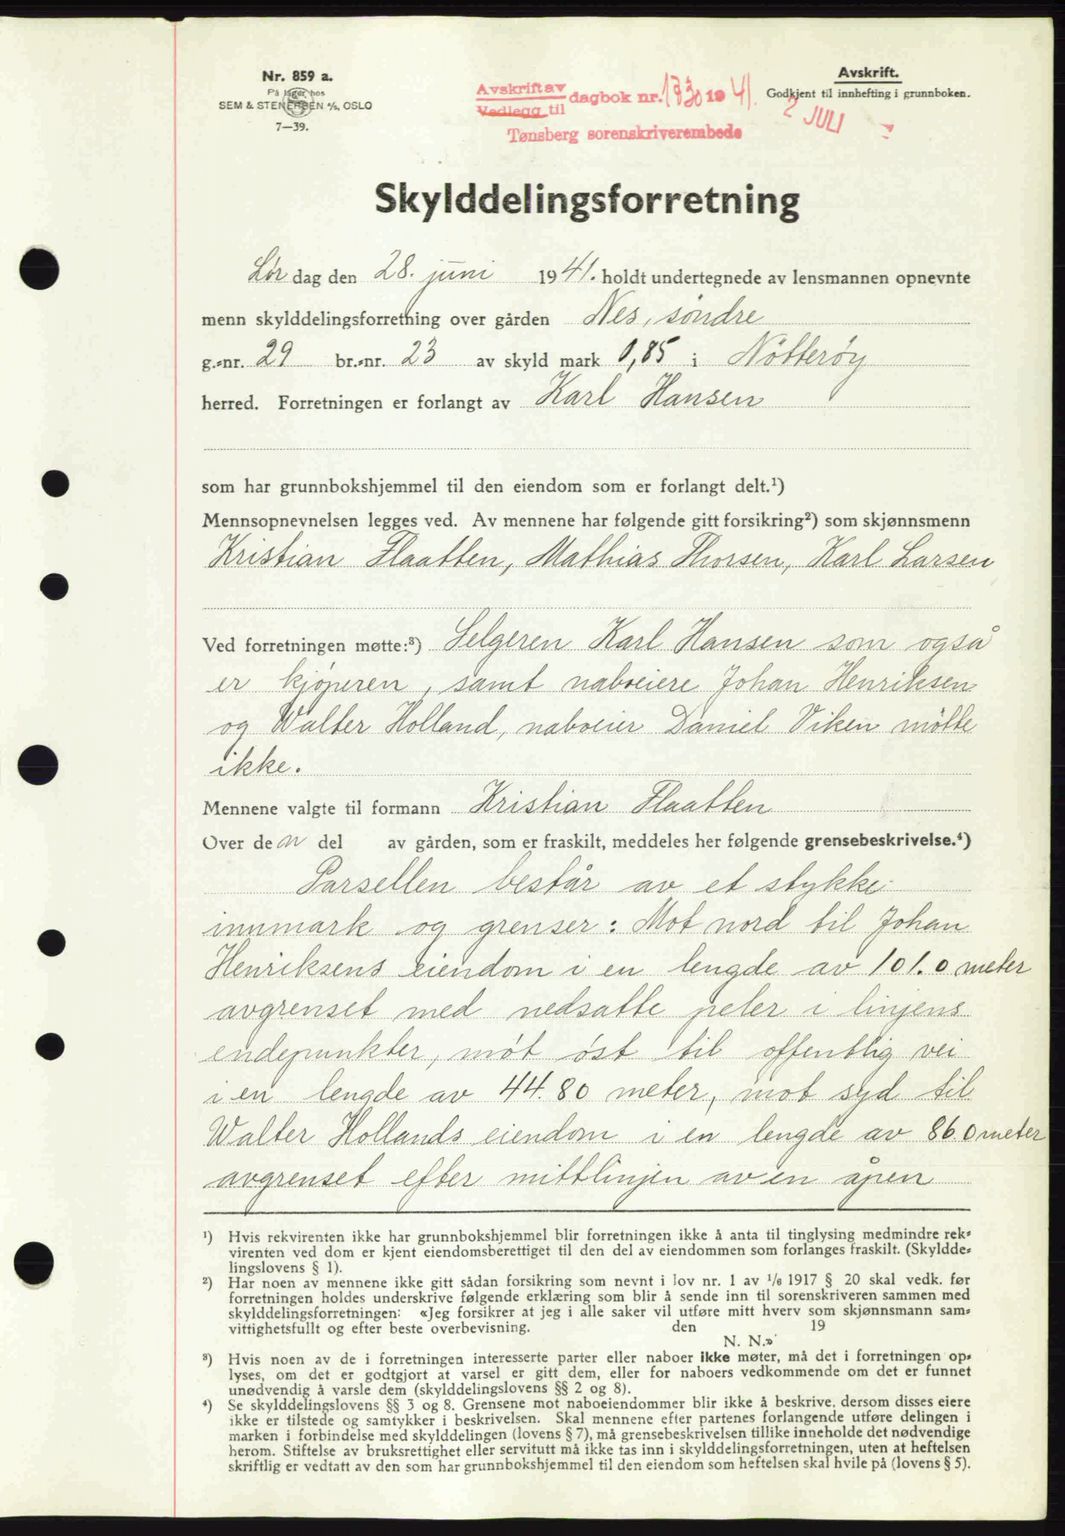 Nr. 859 a.
På lager hos
SEM & STENERSEN A/S, OSLO
7—39.
Avskrift av
Vedlegg til
dagbok nr. 1730 19 41.
Tønsberg sorenskriverembede
Avskrift.
Godkjent til innhefting i grunnboken.
2 JULI
Skylddelingsforretning
Lør dag den 28. juni 19 41. holdt undertegnede av lensmannen opnevnte
menn skylddelingsforretning over gården Nes, søndre
g.-nr. 29 br.-nr. 23 av skyld mark 0,85 i Nøtterøy
herred. Forretningen er forlangt av Karl Hansen
som har grunnbokshjemmel til den eiendom som er forlangt delt.¹)
Mennsopnevnelsen legges ved. Av mennene har følgende gitt forsikring²) som skjønnsmenn
Kristian Flaatten, Mathias Thorsen, Karl Larsen
Ved forretningen møtte:³) Selgeren Karl Hansen som også
er kjøperen, samt naboeiere Johan Henriksen
og Walter Holland, naboeier Daniel Viken møtte
ikke.
Mennene valgte til formann Kristian Flaatten
Over den del av gården, som er fraskilt, meddeles her følgende grensebeskrivelse.⁴)
Parsellen består av et stykke
innmark og grenser: Mot nord til Johan
Henriksens eiendom i en lengde av 101.0 meter
avgrenset med nedsatte peler i linjens
endepunkter, møt øst til offentlig vei
i en lengde av 44.80 meter, mot syd til
Walter Hollands eiendom i en lengde av 86.0 meter
avgrenset efter mittlinjen av en åpen
¹) Hvis rekvirenten ikke har grunnbokshjemmel blir forretningen ikke å anta til tinglysing medmindre rek-
virenten ved dom er kjent eiendomsberettiget til den del av eiendommen som forlanges fraskilt. (Skyldde-
lingslovens § 1).
²) Har noen av mennene ikke gitt sådan forsikring som nevnt i lov nr. 1 av 1/6 1917 § 20 skal vedk. før
forretningen holdes underskrive følgende erklæring som blir å sende inn til sorenskriveren sammen med
skylddelingsforretningen: «Jeg forsikrer at jeg i alle saker vil utføre mitt hverv som skjønnsmann sam-
vittighetsfullt og efter beste overbevisning. den 19
N. N.»
³) Hvis noen av de i forretningen interesserte parter eller naboer ikke møter, må det i forretningen op-
lyses, om det er godtgjort at varsel er gitt dem, eller for naboers vedkommende om det er funnet
unødvendig å varsle dem (skylddelingslovens §§ 2 og 8).
⁴) Se skylddelingslovens §§ 3 og 8. Grensene mot naboeiendommer blir ikke å beskrive, dersom disses eiere
ikke er tilstede og samtykker i beskrivelsen. Skal mennene efter partenes forlangende utføre delingen i
marken i forbindelse med skylddelingen (lovens § 7), må grensebeskrivelsen tillike inneholde det nødvendige
herom. Stiftelse av bruksrettighet eller servitutt må ikke tas inn i skylddelingsforretningen, uten at heftelsen
skriftlig er vedtatt av den som har grunnbokshjemmel til den eiendom som heftelsen skal hvile på (lovens § 5).